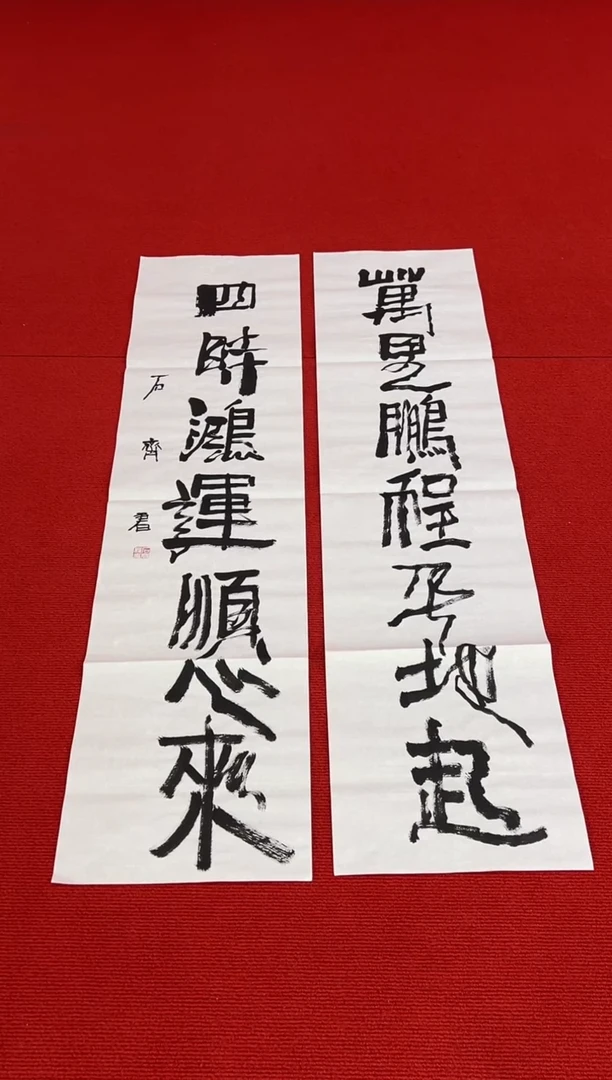 萬里鵬程平地起
四時鴻運順心來
石齊君